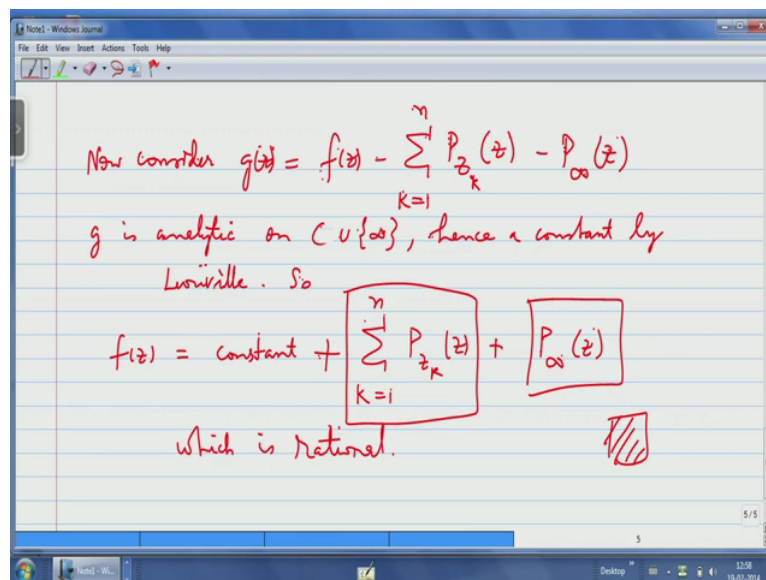 Note1 - Windows Journal
File Edit View Insert Actions Tools Help
Now consider g(z) = f(z) - \sum_{k=1}^{n} P_{z_k}(z) - P_∞(z)
g is analytic on C ∪ {∞}, hence a constant by
Liouville. So
f(z) = constant + \sum_{k=1}^{n} P_{z_k}(z) + P_∞(z)
which is rational.
5/5
5
Note1 - Wi...
Desktop
12:58
19-02-2014